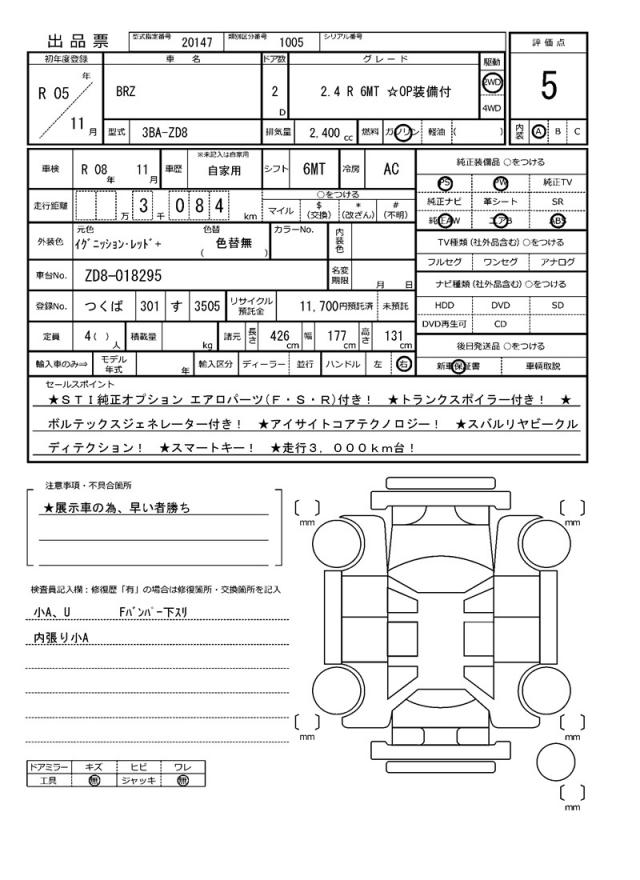 出品票 型式指定番号 20147 類別区分番号 1005 シリアル番号
評価点
初年度登録 車名 ドア数 グレード 駆動
R 05 年 BRZ 2 D 2.4 R 6MT ☆OP装備付 2WD 5
4WD
11 月 型式 3BA-ZD8 排気量 2,400 cc 燃料 ガソリン 軽油 ( ) 内装 A B C
車検 R 08 年 11 月 車歴 ※未記入は自家用 自家用 シフト 6MT 冷房 AC
純正装備品 ○をつける
PS PW 純正TV
走行距離 万 3 千 0 8 4 km ○をつける
マイル $(交換) *(改ざん) #(不明)
純正ナビ 革シート SR
純正AW エアB ABS
外装色 元色 イグニッション・レッド+ 色替 ( 色替無 ) カラーNo. 内装色
TV種類 (社外品含む) ○をつける
フルセグ ワンセグ アナログ
車台No. ZD8-018295 名変期限 月 日
ナビ種類 (社外品含む) ○をつける
登録No. つくば 301 す 3505 リサイクル預託金 11,700円預託済 未預託
HDD DVD SD
DVD再生可 CD
定員 4( ) 人 積載量 kg 諸元 長さ 426 cm 幅 177 cm 高さ 131 cm
後日発送品 ○をつける
輸入車のみ⇒ モデル年式 年 輸入区分 ディーラー 並行 ハンドル 左 右
新車保証書 車輌取説
セールスポイント
★STI純正オプション エアロパーツ(F・S・R)付き! ★トランクスポイラー付き! ★
ボルテックスジェネレーター付き! ★アイサイトコアテクノロジー! ★スバルリヤビークル
ディテクション! ★スマートキー! ★走行3,000km台!
注意事項・不具合箇所
★展示車の為、早い者勝ち
検査員記入欄:修復歴「有」の場合は修復箇所・交換箇所を記入
小A、U Fバンパー下スリ
内張り小A
ドアミラー キズ ヒビ ワレ
工具 無 ジャッキ 無
mm
mm
mm
mm
mm